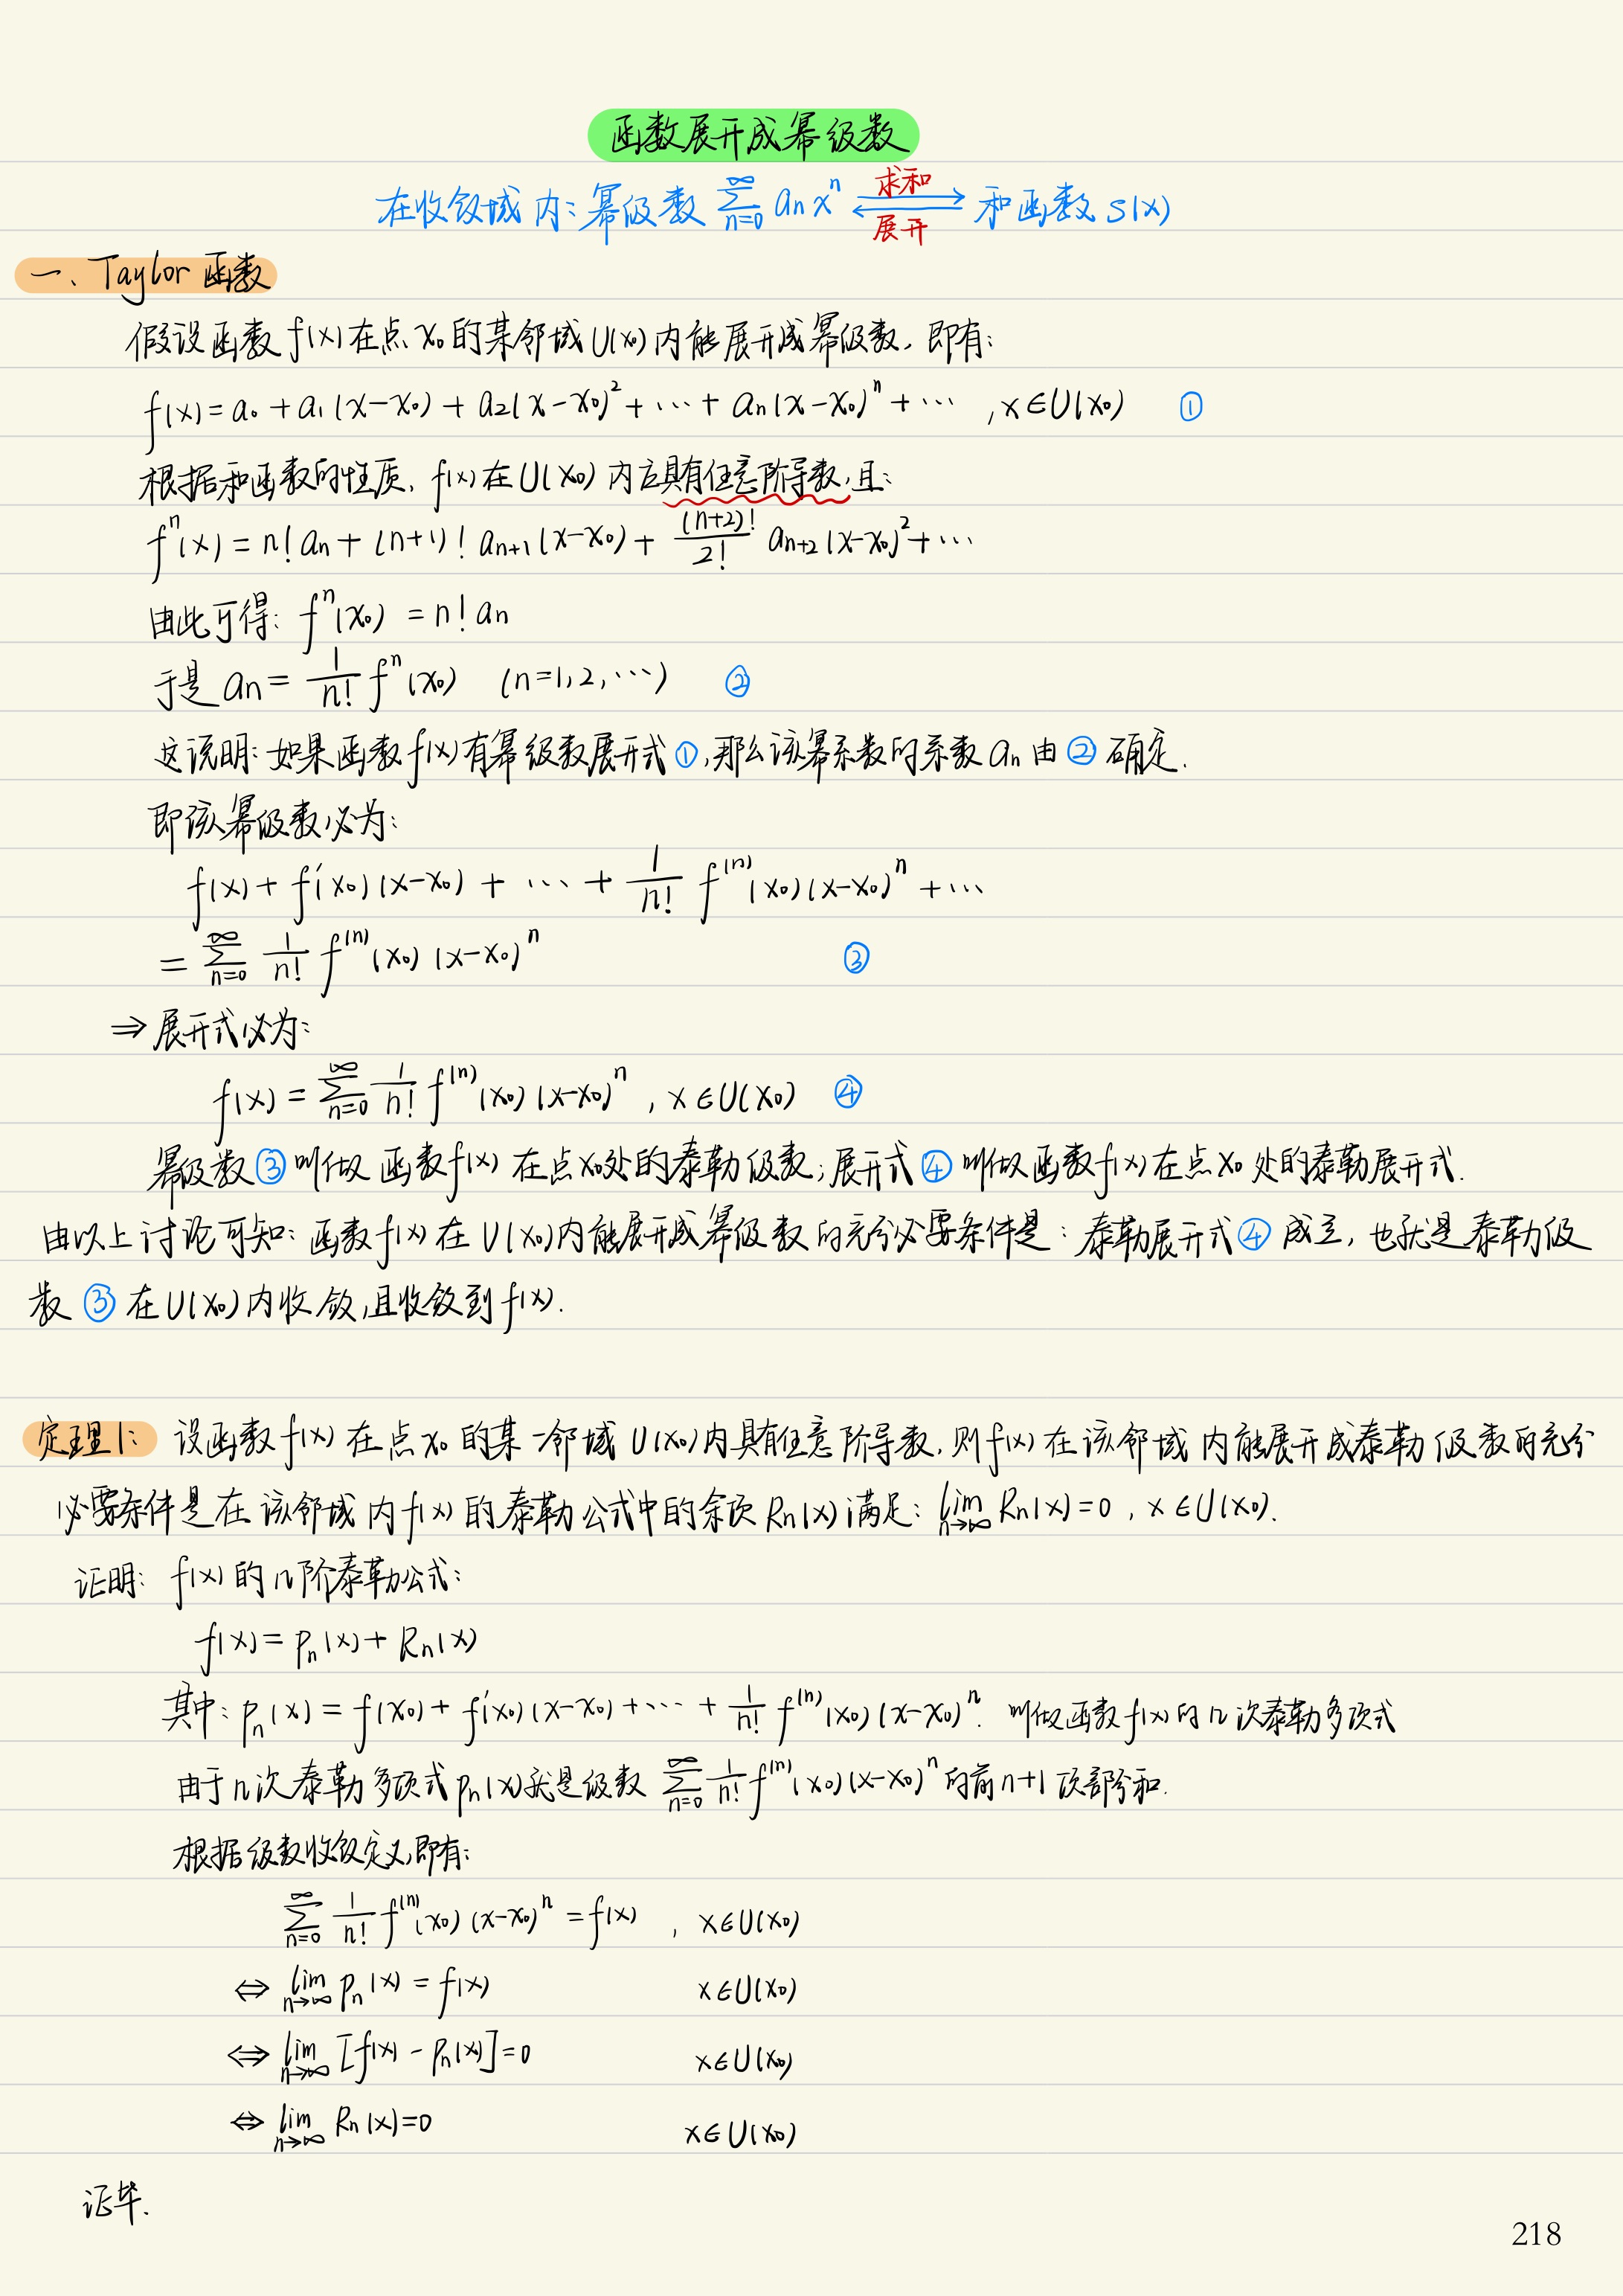 函数展开成幂级数
在收敛域内：幂级数 $\sum_{n=0}^{\infty} a_n x^n$ ⇄ (求和 / 展开) 和函数 S(x)
一、Taylor 函数
假设函数 f(x) 在点 x₀ 的某邻域 U(x₀) 内能展开成幂级数，即有：
$f(x)=a_0+a_1(x-x_0)+a_2(x-x_0)^2+\cdots+a_n(x-x_0)^n+\cdots, x\in U(x_0)$ ①
根据和函数的性质，f(x) 在 U(x₀) 内应具有任意阶导数，且：
$f^{n}(x)=n!a_n+(n+1)!a_{n+1}(x-x_0)+\frac{(n+2)!}{2!}a_{n+2}(x-x_0)^2+\cdots$
由此可得：$f^{n}(x_0)=n!a_n$
于是 $a_n=\frac{1}{n!}f^{n}(x_0)$ (n=1,2,⋯) ②
这说明：如果函数 f(x) 有幂级数展开式①，那么该幂系数的系数 aₙ 由②确定．
即该幂级数必为：
$f(x)+f'(x_0)(x-x_0)+\cdots+\frac{1}{n!}f^{(n)}(x_0)(x-x_0)^n+\cdots$
$=\sum_{n=0}^{\infty}\frac{1}{n!}f^{(n)}(x_0)(x-x_0)^n$ ③
⇒ 展开式必为：
$f(x)=\sum_{n=0}^{\infty}\frac{1}{n!}f^{(n)}(x_0)(x-x_0)^n, x\in U(x_0)$ ④
幂级数③叫做函数 f(x) 在点 x₀ 处的泰勒级数；展开式④叫做函数 f(x) 在点 x₀ 处的泰勒展开式．
由以上讨论可知：函数 f(x) 在 U(x₀) 内能展开成幂级数的充分必要条件是：泰勒展开式④成立，也就是泰勒级
数③在 U(x₀) 内收敛，且收敛到 f(x)．
定理1：设函数 f(x) 在点 x₀ 的某一邻域 U(x₀) 内具有任意阶导数，则 f(x) 在该邻域内能展开成泰勒级数的充分
必要条件是在该邻域内 f(x) 的泰勒公式中的余项 Rₙ(x) 满足：$\lim_{n\to\infty}R_n(x)=0, x\in U(x_0)$．
证明：f(x) 的 n 阶泰勒公式：
$f(x)=p_n(x)+R_n(x)$
其中：$p_n(x)=f(x_0)+f'(x_0)(x-x_0)+\cdots+\frac{1}{n!}f^{(n)}(x_0)(x-x_0)^n$．叫做函数 f(x) 的 n 次泰勒多项式
由于 n 次泰勒多项式 pₙ(x) 就是级数 $\sum_{n=0}^{\infty}\frac{1}{n!}f^{(n)}(x_0)(x-x_0)^n$ 的前 n+1 项部分和．
根据级数收敛定义，即有：
$\sum_{n=0}^{\infty}\frac{1}{n!}f^{(n)}(x_0)(x-x_0)^n=f(x)$，$x\in U(x_0)$
$\Leftrightarrow\lim_{n\to\infty}p_n(x)=f(x)$ $x\in U(x_0)$
$\Leftrightarrow\lim_{n\to\infty}[f(x)-p_n(x)]=0$ $x\in U(x_0)$
$\Leftrightarrow\lim_{n\to\infty}R_n(x)=0$ $x\in U(x_0)$
证毕．
218